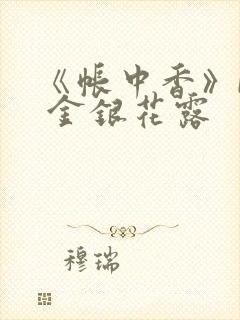 《帐中香》
金银花露
穆瑞